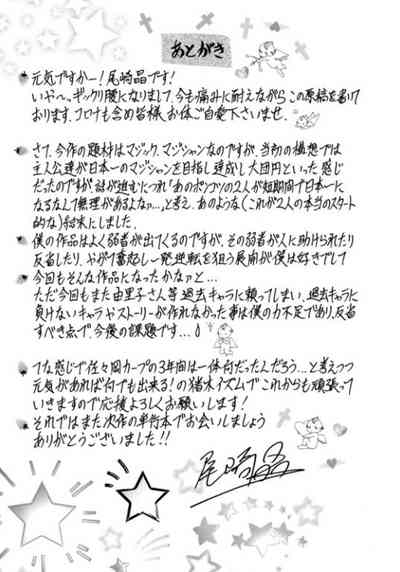 あとがき
元気ですかー!尾崎晶です!
いや〜、ギックリ腰になりまして、今も痛みに耐えながらこの原稿を書いて
おります、コロナも含め皆様、お体ご自愛下さいませ。
さて、今作の題材はマジック、マジシャンなのですが、当初の構想では
主人公達が日本一のマジシャンを目指し達成し大団円といった感じ
だったのですが、話が進むにつれ「あのポンコツの2人が短期間で日本一に
なるなんて無理があるよなァ…」と考え、あのような(これが2人の本当のスタート
的な)結末にしました。
僕の作品はよく弱者が出てくるのですが、その弱者が人に助けられたり
反省したり、やがて奮起し一発逆転を狙う展開が僕は好きでして
今回もそんな作品になったかなァと…
ただ今回もまた由里子さん等過去キャラに頼ってしまい、過去キャラに
負けないキャラやストーリーが作れなかった事は僕の力不足であり、反省
すべき点で、今後の課題です…
てな感じで佐々岡カープの3年間は一体何だったんだろう…と考えつつ
元気があれば何でも出来る!の猪木イズムでこれからも頑張って
いきますので応援よろしくお願いします!
それではまた次作の単行本でお会いしましょう
ありがとうございました!!
尾崎晶